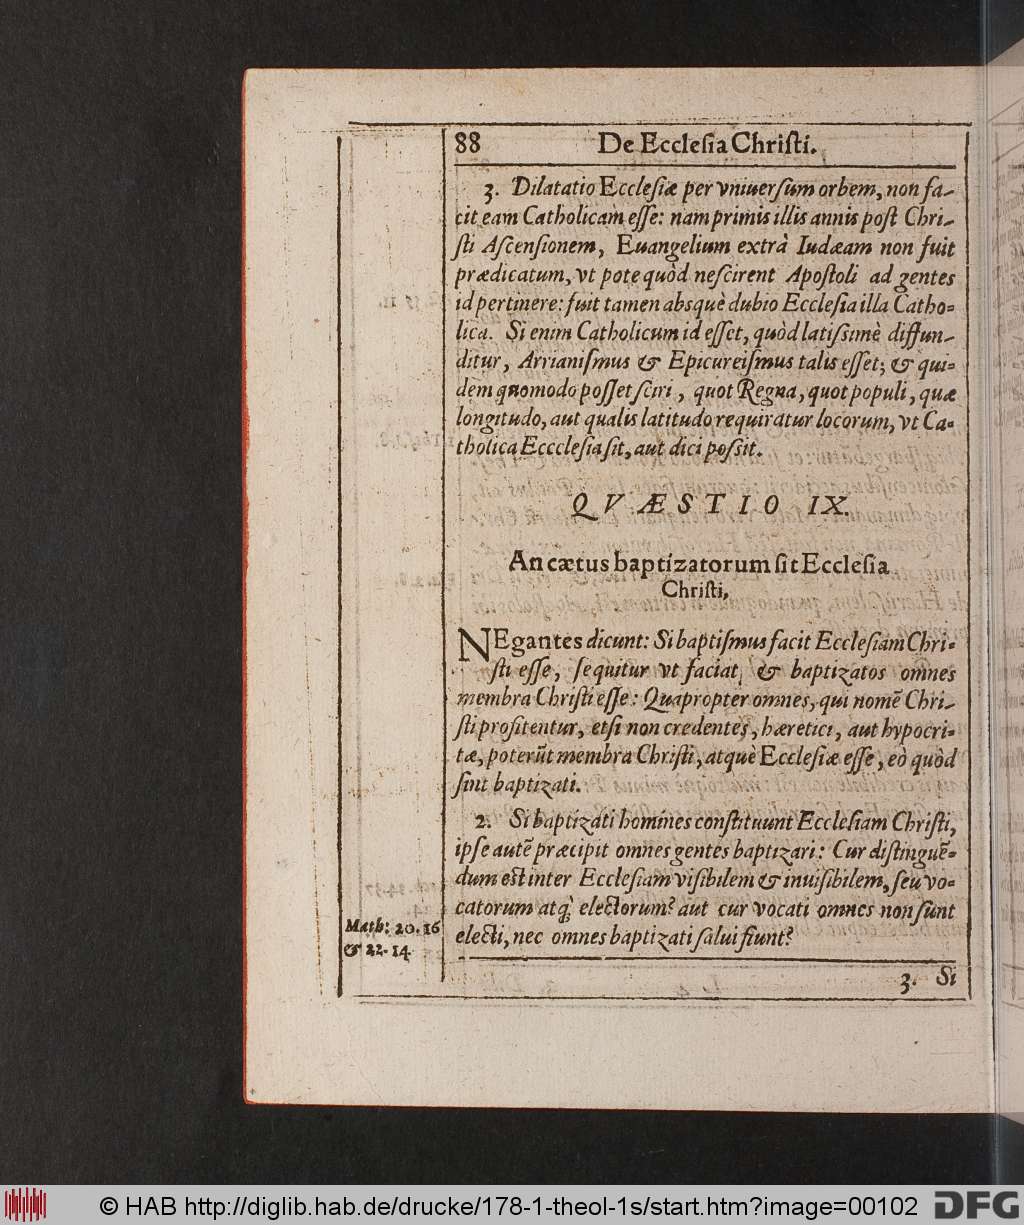 88 De Ecclesia Christi.
3. Dilatatio Ecclesiæ per vniuersum orbem, non fa-
cit eam Catholicam esse: nam primis illis annis post Chri-
sti Ascensionem, Euangelium extrà Iudæam non fuit
prædicatum, vt pote quòd nescirent Apostoli ad gentes
id pertinere: fuit tamen absquè dubio Ecclesia illa Catho-
lica. Si enim Catholicum id esset, quòd latissimè diffun-
ditur, Arrianismus & Epicureismus talis esset; & qui-
dem quomodo posset sciri, quot Regna, quot populi, quæ
longitudo, aut qualis latitudo requiratur locorum, vt Ca-
tholica Eccclesia sit, aut dici possit.
QVÆSTIO IX.
An cætus baptizatorum sit Ecclesia
Christi,
NEgantes dicunt: Si baptismus facit Ecclesiam Chri-
sti esse, sequitur vt faciat, & baptizatos omnes
membra Christi esse: Quapropter omnes, qui nomē Chri-
sti profitentur, etsi non credentes, hæretici, aut hypocri-
tæ, poterūt membra Christi, atquè Ecclesiæ esse, eò quòd
sint baptizati.
2. Si baptizati homines constituunt Ecclesiam Christi,
ipse autē præcipit omnes gentes baptizari: Cur distinguē-
dum est inter Ecclesiam visibilem & inuisibilem, seu vo-
catorum atq; electorum? aut cur vocati omnes non sunt
electi, nec omnes baptizati salui fiunt?
Math: 20. 16
& 22. 14.
3. Si
© HAB http://diglib.hab.de/drucke/178-1-theol-1s/start.htm?image=00102 DFG